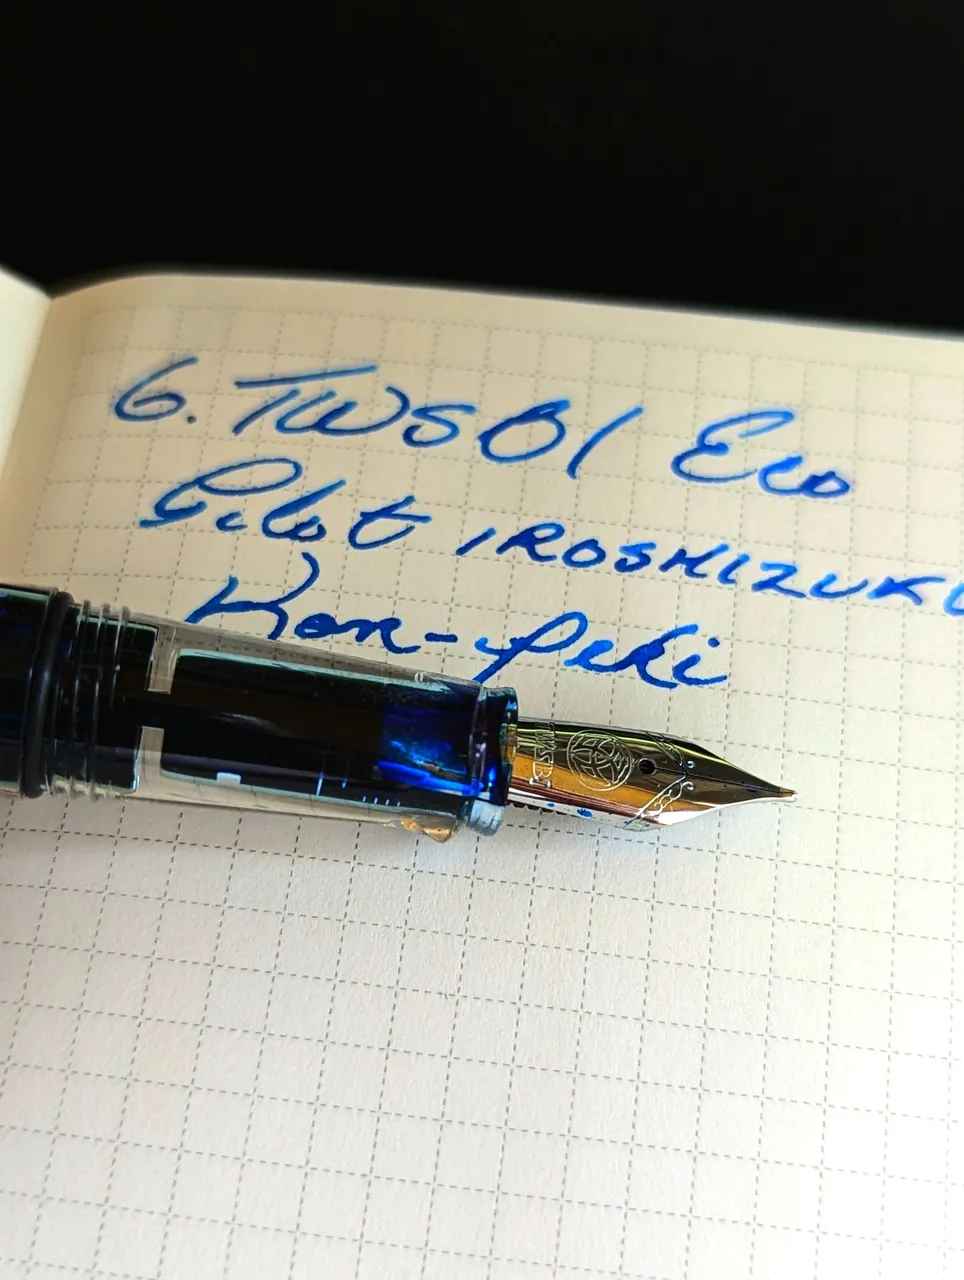 6. TWSBI Eco
Pilot IROSHIZUKU
Kon-peki
TWSBI